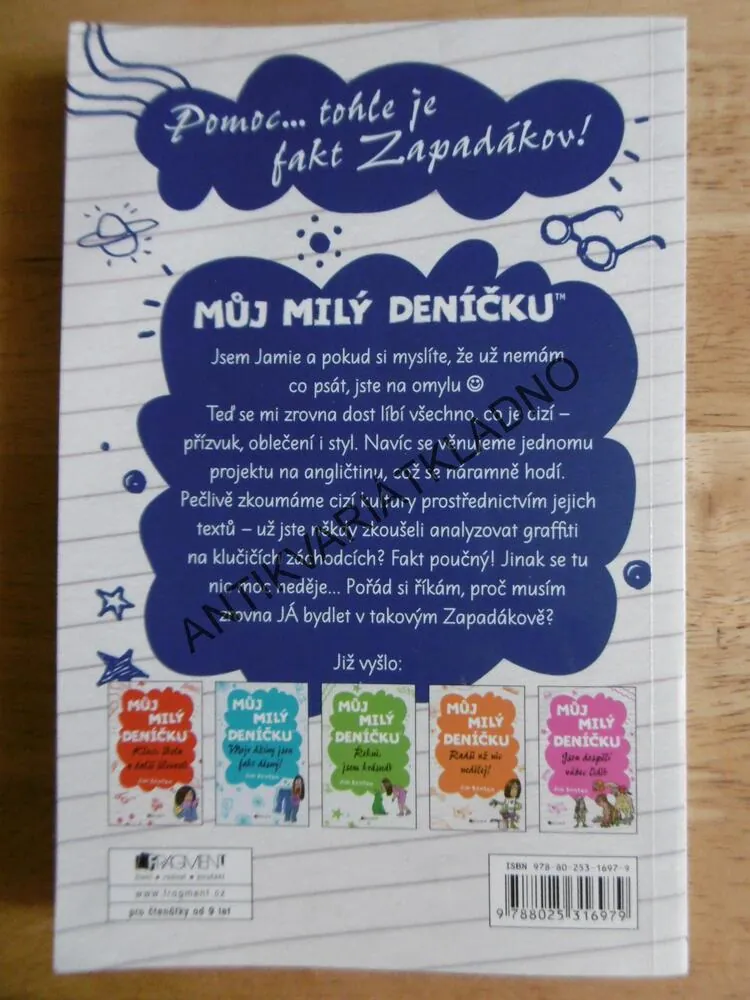 Pomoc... tohle je
fakt Zapadákov!
MŮJ MILÝ DENÍČKU™
Jsem Jamie a pokud si myslíte, že už nemám
co psát, jste na omylu ☺
Teď se mi zrovna dost líbí všechno, co je cizí –
přízvuk, oblečení i styl. Navíc se věnujeme jednomu
projektu na angličtinu, což se náramně hodí.
Pečlivě zkoumáme cizí kultury prostřednictvím jejich
textů – už jste někdy zkoušeli analyzovat graffiti
na klučičích záchodcích? Fakt poučný! Jinak se tu
nic moc neděje... Pořád si říkám, proč musím
zrovna JÁ bydlet v takovým Zapadákově?
ANTIKVARIATKLADNO
Již vyšlo:
MŮJ
MILÝ
DENÍČKU
MŮJ
MILÝ
DENÍČKU
Moje džíny jsou
fakt děsný!
Jim Benton
MŮJ
MILÝ
DENÍČKU
Řekni,
jsem krásná?
Jim Benton
MŮJ
MILÝ
DENÍČKU
Radši už nic
nedělej!
Jim Benton
MŮJ
MILÝ
DENÍČKU
Jsem dospělá
vůbec lidi?
Jim Benton
FRAGMENT
www.fragment.cz
pro čtenářky od 9 let
ISBN 978-80-253-1697-9
9 788025 316979